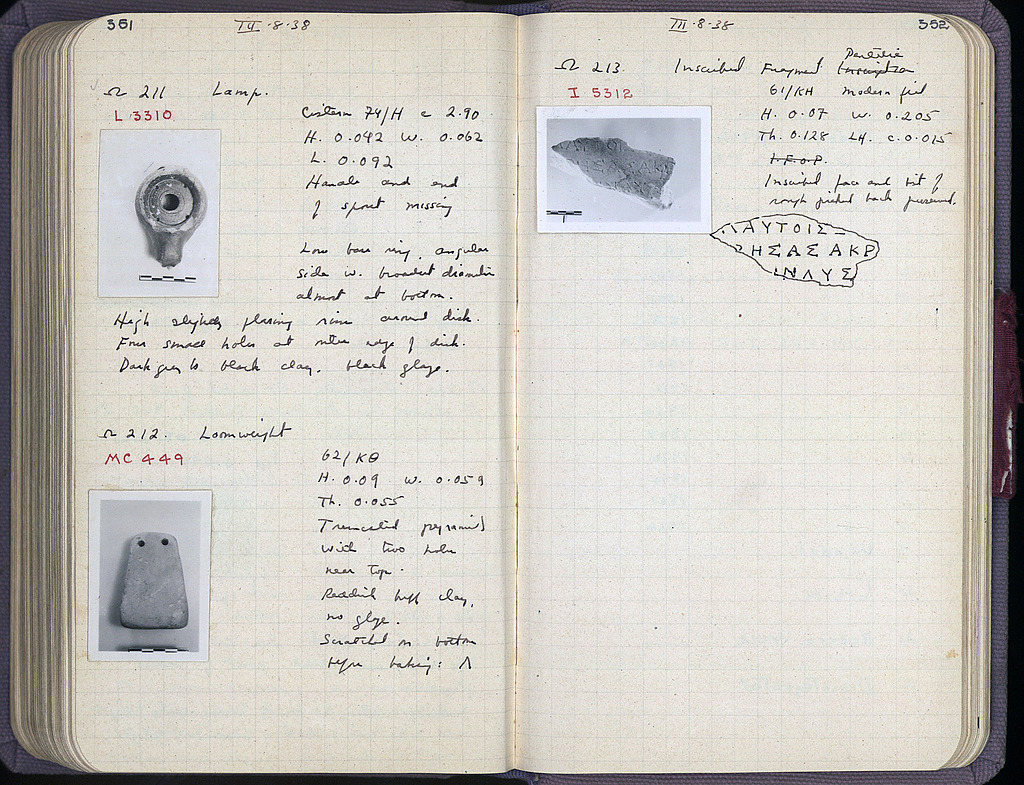 551
III·8·38
Ω 211 Lamp.
L 3310
Cistern 74/H c 2.90
H. 0.042 W. 0.062
L. 0.092
Handle and end
of spout missing
Low base ring, angular
side w. broadest diameter
almost at bottom.
High slightly flaring rim around disk.
Four small holes at outer edge of disk.
Dark grey to black clay, black glaze.
Ω 212. Loomweight
MC 449
62/ΚΘ
H. 0.09 W. 0.059
Th. 0.055
Truncated pyramid
with two holes
near top.
Reddish buff clay,
no glaze.
Scratched on bottom
before baking: Λ
552
III·8·38
Ω 213. Inscribed Fragment Inscription
Pentelic
I 5312
61/ΚΗ modern fill
H. 0.07 W. 0.205
Th. 0.128 LH. c. 0.015
I.F.o.P.
Inscribed face and bit of
rough picked back preserved.
ΛΑΥΤΟΙΣ
ΗΣΑΣΑΚΡ
ΙΝΛΥΣ